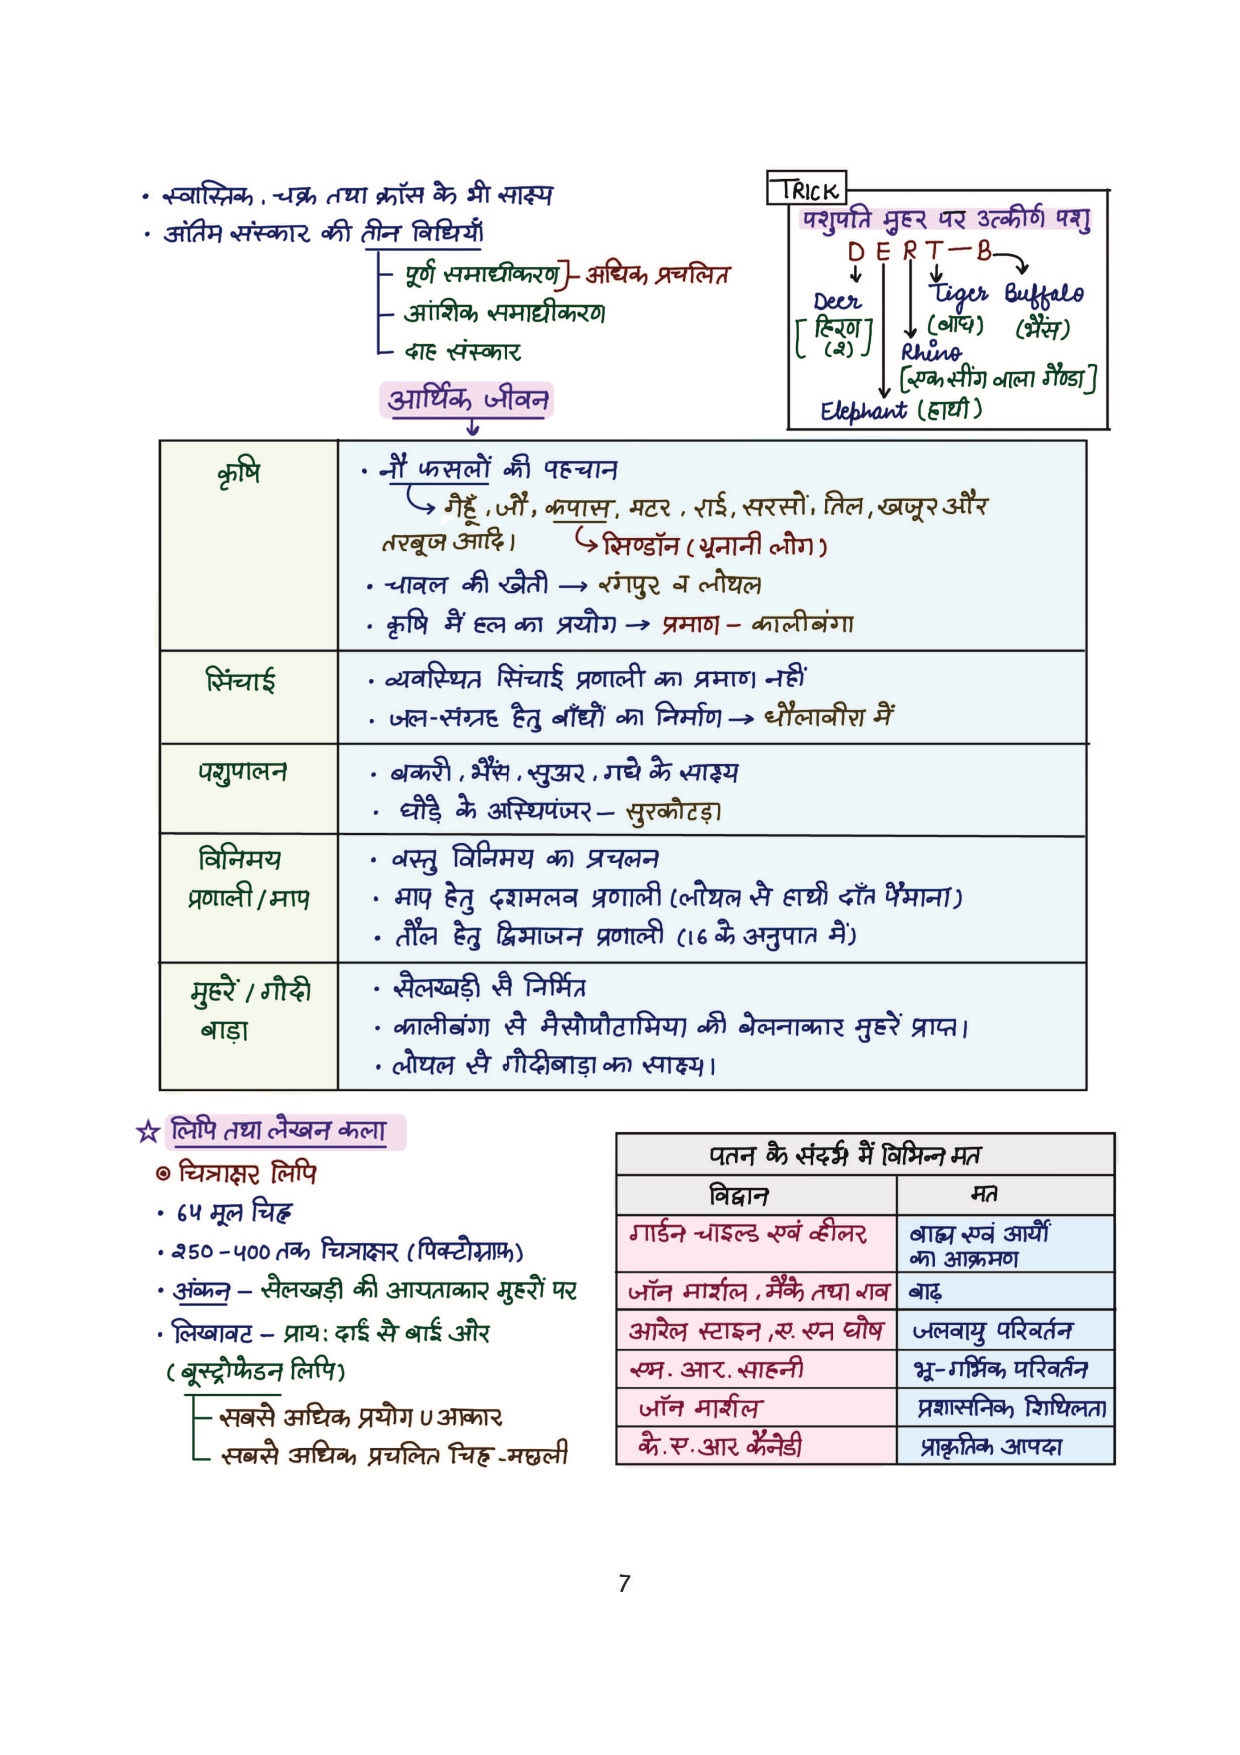 • स्वास्तिक, चक्र तथा क्रॉस के भी साक्ष्य
• अंतिम संस्कार की तीन विधियाँ
पूर्ण समाधीकरण ]- अधिक प्रचलित
आंशिक समाधीकरण
दाह संस्कार
TRICK
पशुपति मुहर पर उत्कीर्ण पशु
D E R T — B
Deer
[हिरण]
(२)
Tiger
(बाघ)
Buffalo
(भैंस)
Rhino
[एक सींग वाला गैण्डा]
Elephant (हाथी)
आर्थिक जीवन
कृषि
• नौ फसलों की पहचान
गेहूँ, जौ, कपास, मटर, राई, सरसों, तिल, खजूर और
तरबूज आदि।
सिण्डॉन (यूनानी लोग)
• चावल की खेती → रंगपुर व लोथल
• कृषि में हल का प्रयोग → प्रमाण – कालीबंगा
सिंचाई
• व्यवस्थित सिंचाई प्रणाली का प्रमाण नहीं
• जल-संग्रह हेतु बाँधों का निर्माण → धौलावीरा में
पशुपालन
• बकरी, भैंस, सुअर, गधे के साक्ष्य
• घोड़े के अस्थिपंजर – सुरकोटड़ा
विनिमय
प्रणाली / माप
• वस्तु विनिमय का प्रचलन
• माप हेतु दशमलव प्रणाली (लोथल से हाथी दाँत पैमाना)
• तौल हेतु द्विभाजन प्रणाली (16 के अनुपात में)
मुहरें / गोदी
बाड़ा
• सेलखड़ी से निर्मित
• कालीबंगा से मेसोपोटामिया की बेलनाकार मुहरें प्राप्त।
• लोथल से गोदीबाड़ा का साक्ष्य।
☆ लिपि तथा लेखन कला
⦿ चित्राक्षर लिपि
• 64 मूल चिह्न
• २50 – 400 तक चित्राक्षर (पिक्टोग्राफ)
• अंकन – सेलखड़ी की आयताकार मुहरों पर
• लिखावट – प्राय: दाईं से बाईं ओर
(बूस्ट्रोफेडन लिपि)
सबसे अधिक प्रयोग U आकार
सबसे अधिक प्रचलित चिह्न - मछली
पतन के संदर्भ में विभिन्न मत
विद्वान
मत
गार्डन चाइल्ड एवं व्हीलर
बाह्य एवं आर्यों
का आक्रमण
जॉन मार्शल, मैके तथा राव
बाढ़
आरेल स्टाइन, ए. एन घोष
जलवायु परिवर्तन
एम. आर. साहनी
भू-गर्भिक परिवर्तन
जॉन मार्शल
प्रशासनिक शिथिलता
के. ए. आर कैनेडी
प्राकृतिक आपदा
7